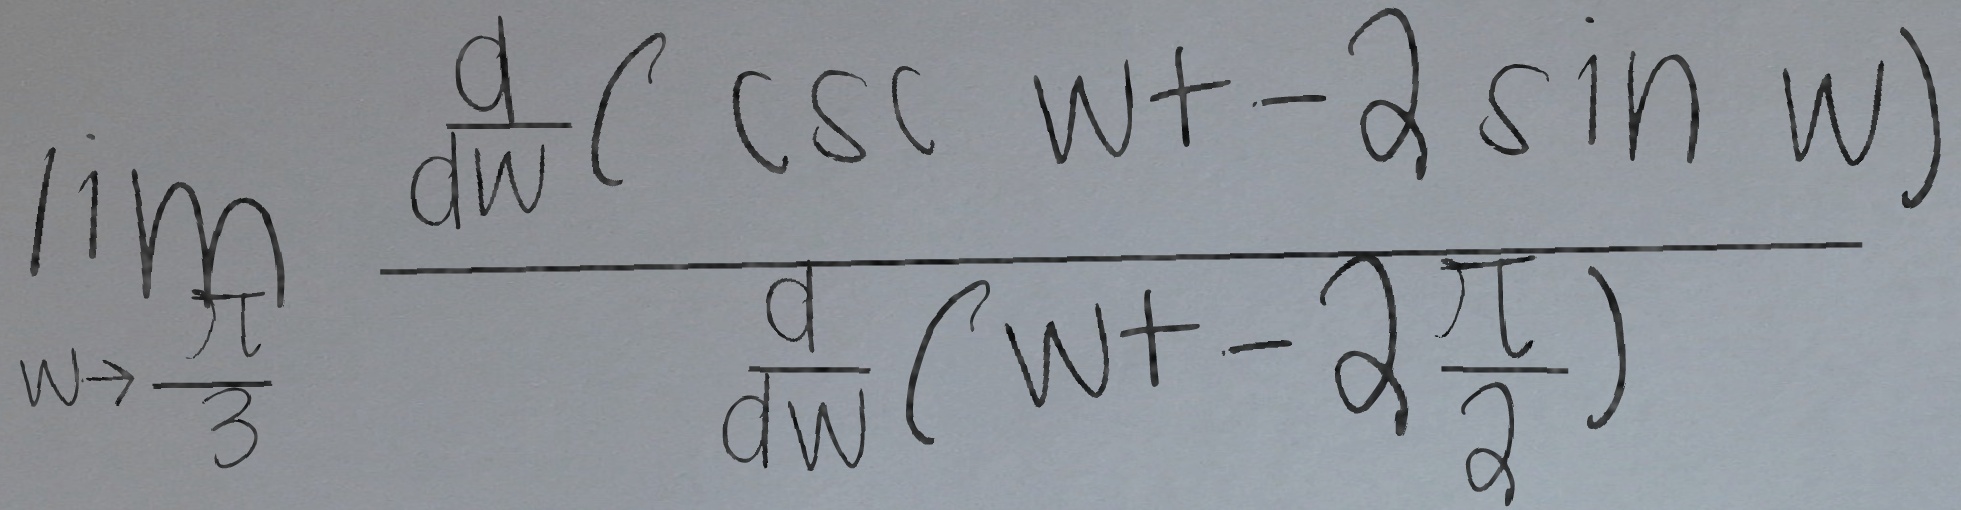 \lim_{w \to \frac{\pi}{3}} \frac{\frac{d}{dw}(\csc w + -2 \sin w)}{\frac{d}{dw}(w + -2\frac{\pi}{2})}